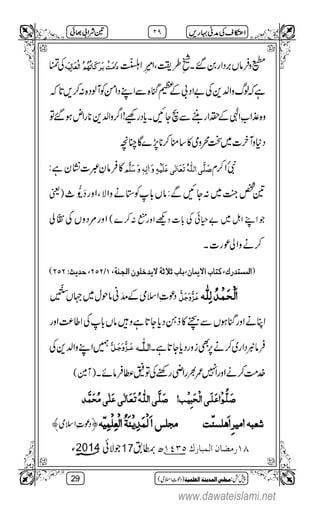 تین شرابی بھائی ۲۹ اعتکاف کی مدنی بہاریں
مطیع و فرمانبردار بن گئے۔ شیخِ طریقت، امیرِ اہلسنّت دَامَتْ بَرَکَاتُہُمُ الْعَالِیَہ کی تمنا
ہے کہ لوگ والدین کی بے ادبی کے عظیم گناہ سے اپنے دامن کو آلودہ نہ کریں تاکہ
وہ عذابِ الٰہی کے حقدار بننے سے بچ جائیں۔ یاد رکھئے! اگر والدین ناراض ہو گئے تو
دنیا و آخرت میں سخت محرومی کا سامنا کرنا پڑے گا چنانچہ
نبیِّ اکرم صَلَّی اللہُ تَعَالٰی عَلَیْہِ وَاٰلِہٖ وَسَلَّم کا فرمانِ عبرت نشان ہے:
تین شخص جنت میں نہ جائیں گے: ماں باپ کو ستانے والا، اور دَیُّوث (یعنی
جو اپنے اہل میں بے حیائی کی بات دیکھے اور منع نہ کرے) اور مردوں کی نقالی
کرنے والی عورت۔
(المستدرك، كتاب الايمان، باب ثلاثة لايدخلون الجنة، ۲۵۲/۱، حدیث: ۲۵۲)
اَلْحَمْدُ لِلّٰہ عَزَّوَجَلَّ دعوتِ اسلامی کے مدنی ماحول میں جہاں سنّتیں
اپنانے اور گناہوں سے بچنے کا ذہن دیا جاتا ہے وہیں ماں باپ کی اطاعت اور
فرمانبرداری کرنے پر بھی زور دیا جاتا ہے۔ اللہ عَزَّوَجَلَّ ہمیں اپنے والدین کی
خدمت کرنے اور انہیں عمر بھر راضی رکھنے کی توفیق عطا فرمائے۔ (آمین)
صَلُّوْا عَلَی الْحَبِیْب! صَلَّی اللہُ تَعَالٰی عَلٰی مُحَمَّد
شعبہ امیرِ اَہلسنّت مجلس اَلْمَدِیْنَۃُ الْعِلْمِیَّہ ﴿دعوتِ اسلامی﴾
۱۸ رمضان المبارک ۱۴۳۵ھ بمطابق 17 جولائی 2014ء
پیش کش: مجلس المدینۃ العلمیۃ (دعوتِ اسلامی) 29
www.dawateislami.net